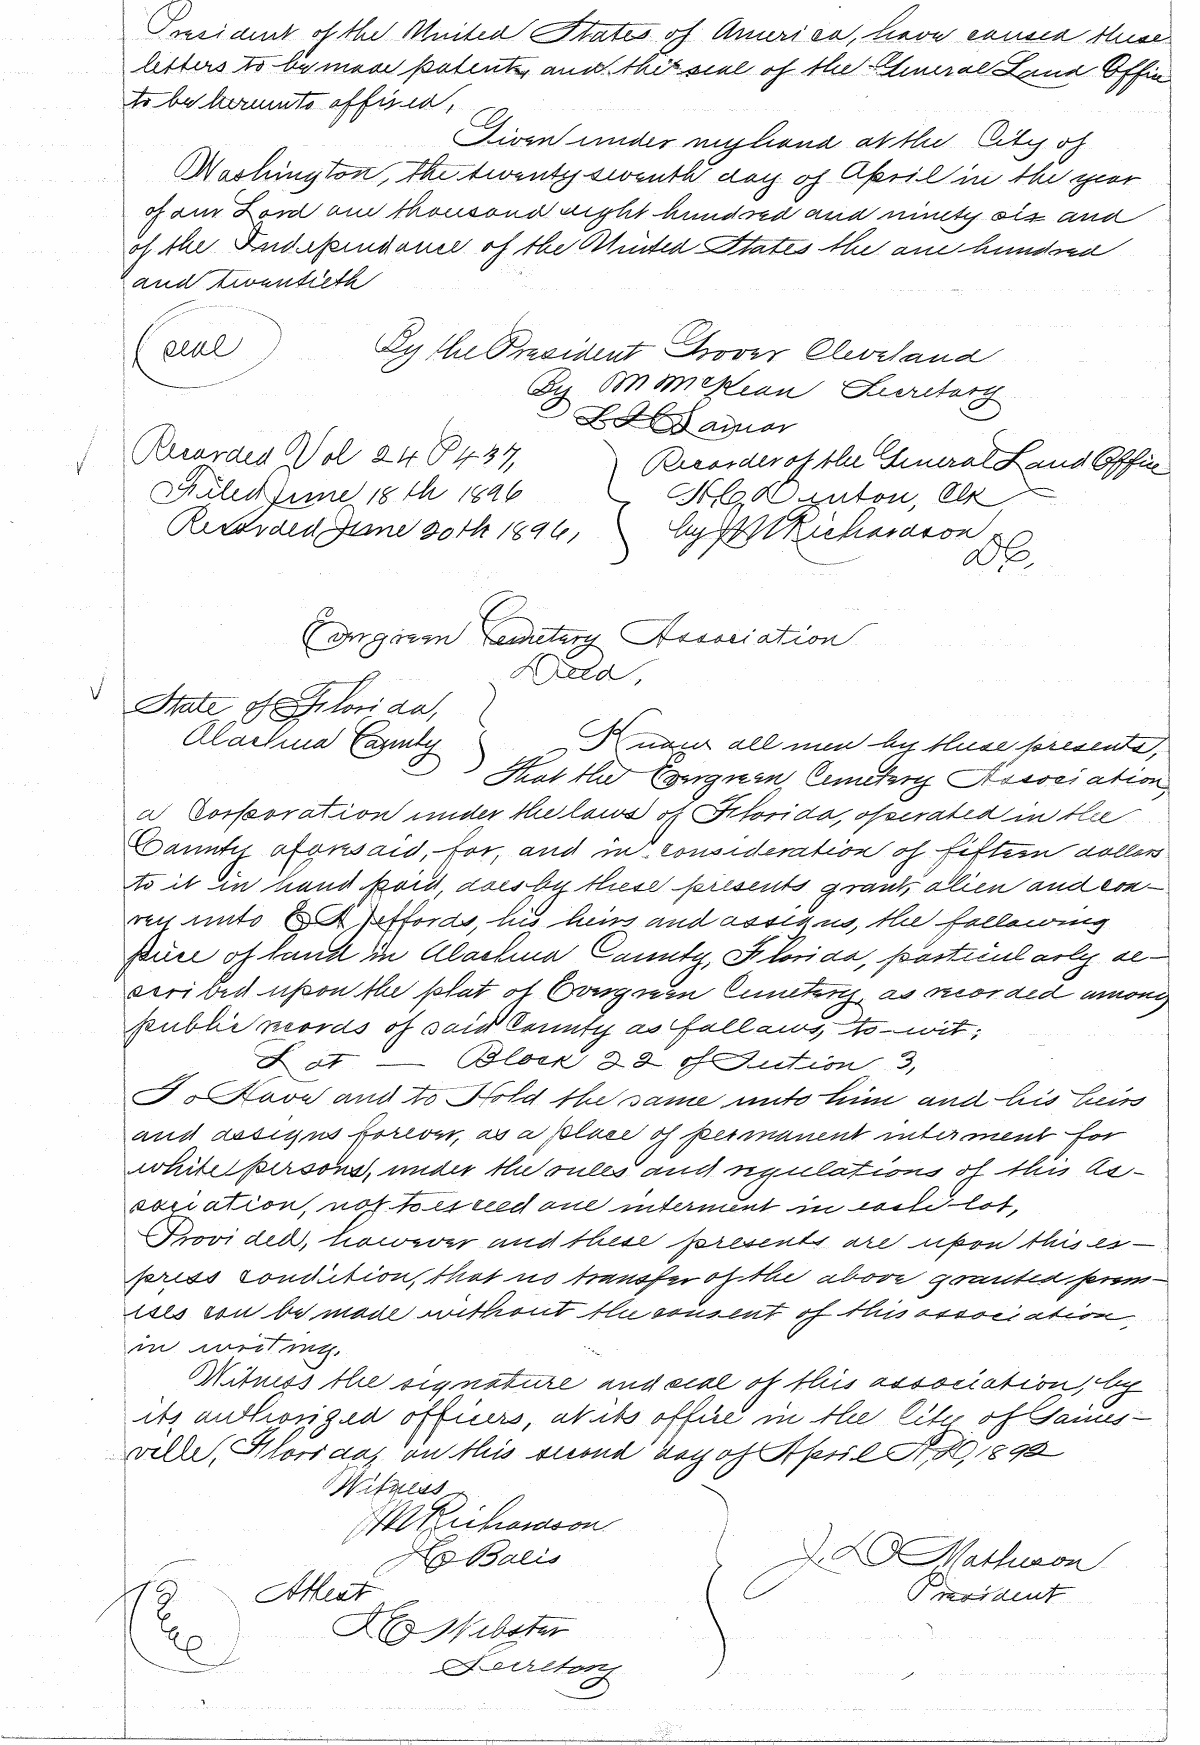 President of the United States of America, have caused these
letters to be made patent, and the seal of the General Land Office
to be hereunto affixed,
Given under my hand at the City of
Washington, the twenty seventh day of April in the year
of our Lord one thousand eight hundred and ninety six and
of the Independance of the United States the one hundred
and twentieth
(seal)
By the President Grover Cleveland
By M McKean Secretary
Lamar
Recorded Vol 24 P 437,
Recorder of the General Land Office
Filed June 18th 1896
H.C. Denton, Clk
Recorded June 20th 1896,
by M Richardson
DC,
Evergreen Cemetery Association
Deed,
State of Florida,
Alachua County
Know all men by these presents,
That the Evergreen Cemetery Association,
a Corporation under the laws of Florida, operated in the
County aforesaid, for, and in consideration of fifteen dollars
to it in hand paid, does by these presents grant, alien and con-
vey unto Jeffords, his heirs and assigns, the following
piece of land in Alachua County, Florida, particularly de-
scribed upon the plat of Evergreen Cemetery as recorded among
public records of said County as follows, to-wit;
Lot — Block 22 of Section 3,
To Have and to Hold the same unto him and his heirs
and assigns forever, as a place of permanent interment for
white persons, under the rules and regulations of this As-
sociation, not to exceed one interment in each lot,
Provided, however and these presents are upon this ex-
press condition, that no transfer of the above granted prem-
ises can be made without the consent of this association,
in writing.
Witness the signature and seal of this association, by
its authorized officers, at its office in the City of Gaines-
ville, Florida, on this second day of April A,D, 1892
Witness
M Richardson
Balis
J. D Matheson
President
Attest
Webster
Secretary